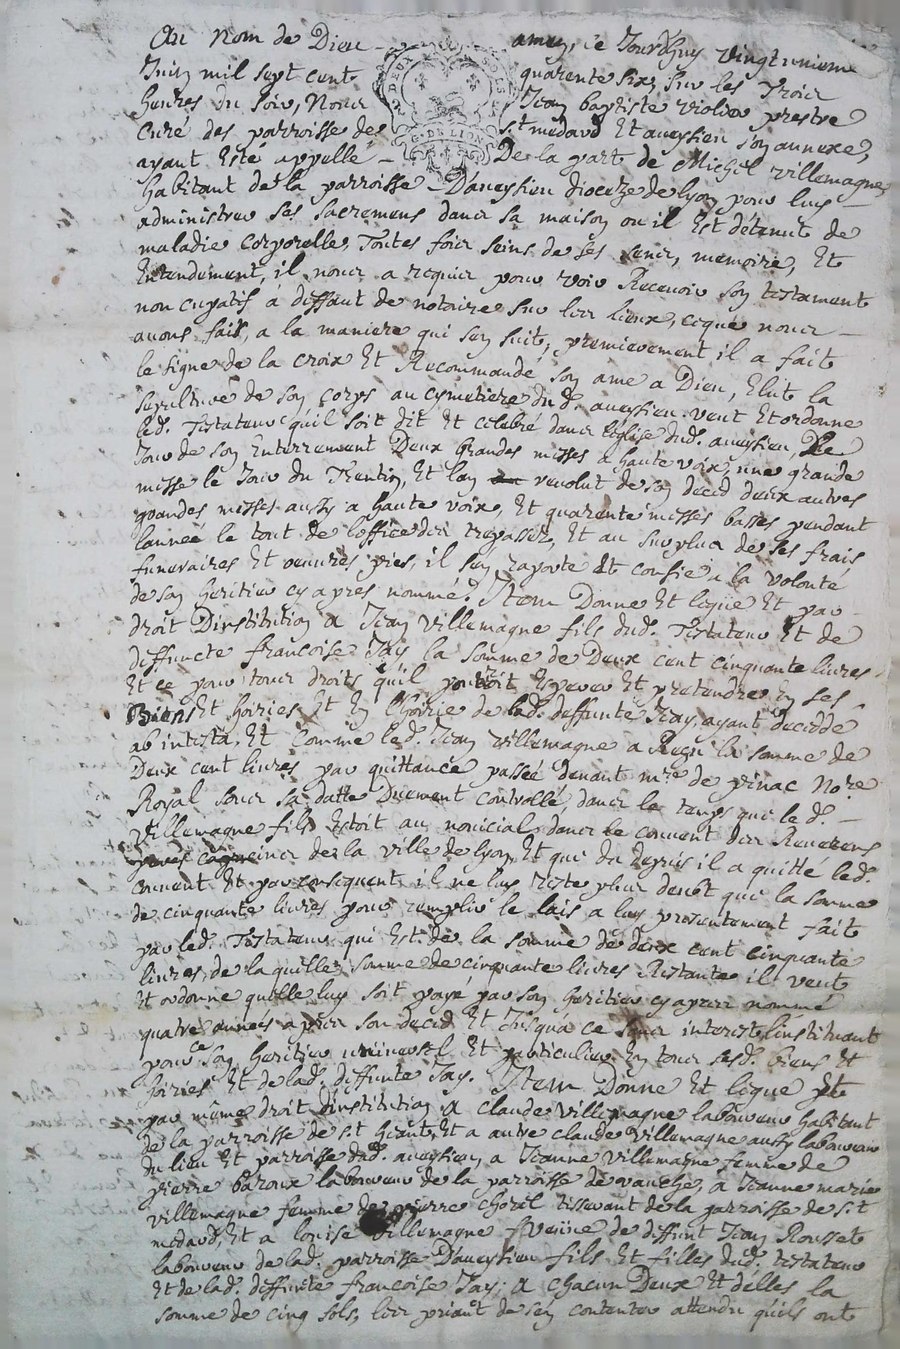 Au Nom de Dieu amen, ce Jourd'huy vingtunieme
Juin mil sept cent quarente six, sur les Trois
heures du soir, Nous Jean baptiste violier prestre
Curé des parroisse de St medard Et aveysieu son annexe,
ayant Esté appellé De la part de Michel villemagne
habitant de la parroisse D'aveysieu diocéze de lyon pour luy
administrer ses sacremens dans sa maison ou il Est détenut de
maladie corporelle, Toutes fois seins de ses sens, memoire, Et
Entendement, il nous a requier pour voir Recevoir son testament
noncupatif, a diffaut de notaire sur les lieux, ceque nous
avons fait, a la maniere qui sen suit, premierement il a fait
le signe de la croix Et Recommandé son ame a Dieu, Elut la
sepulture de son corps au cymetiere dud. aveysieu veut Et ordonne
led. Testateur quil soit dit Et célébré dans léglise dud. aveysieu, Le
Jour de son Enterrement Deux Grandes misses a haute voix, une grande
misse le Jour du Trentin, Et lan revolut de son deced deux autres
grandes misses aussy a haute voix, Et quarente misses basses pendant
lannée le tout de loffice des trepassez, Et au surplus de ses frais
funeraires Et oeuvres pies, il sen raporte Et confie a la volonté
de son heritier cy apres nommé. Item Donne Et legue Et par
droit Dinstitution a Jean Villemagne fils dud. Testateur Et de
diffuncte francoise Jay la somme de Deux cent cinquante livres
Et ce pour tous droits qu'il pourroit Esperer Et pretendre En ses
Biens Et hoiries Et En lhoirie de lad. deffunte Jay, ayant decedée
ab intesta, Et comme led. Jean villemagne a Reçu la somme de
Deux cent livres par quittance passée devant mre de pinac Nore
Royal sous sa datte Duement controllé dans le temps que led.
villemagne fils Estoit au noviciat dans le couvent des Reverens
peres capucins de la ville de lyon, Et que du depuis il a quitté led.
couvent Et par consequent il ne luy reste plus deubt que la somme
de cinquante livres pour remplir le lais a luy presentement fait
par led. Testateur qui Est de la somme de deux cent cinquante
livres, de laquelle somme de cinquante livres Restante il veut
Et ordonne quelle luy soit payé par son heritier cy apres nommé
quatre années apres son deced Et Jusqua ce sans interest linstituant
pour ce son heritier universel Et particulier En tous sesd. biens Et
hoiries Et de lad. diffunte Jay. Item Donne Et legue Et
par même droit Dinstitution a claude villemagne laboureur habitant
de la parroisse de St Et a autre claude villemagne aussy laboureur
du lieu Et parroisse dud. aveysieu, a Jeanne villemagne femme de
pierre baroux laboureur de la parroisse de a Jeanne marie
villemagne femme de pierre tisserant de la parroisse de St
medard, Et a louise villemagne veüve de diffunt Jean Rousset
laboureur de lad. parroisse D'aveysieu fils Et filles dud. testateur
Et de lad. diffunte francoise Jay; a chacun Deux Et d'elles la
somme de cinq sols, les priant de sen contenter attendu quils ont